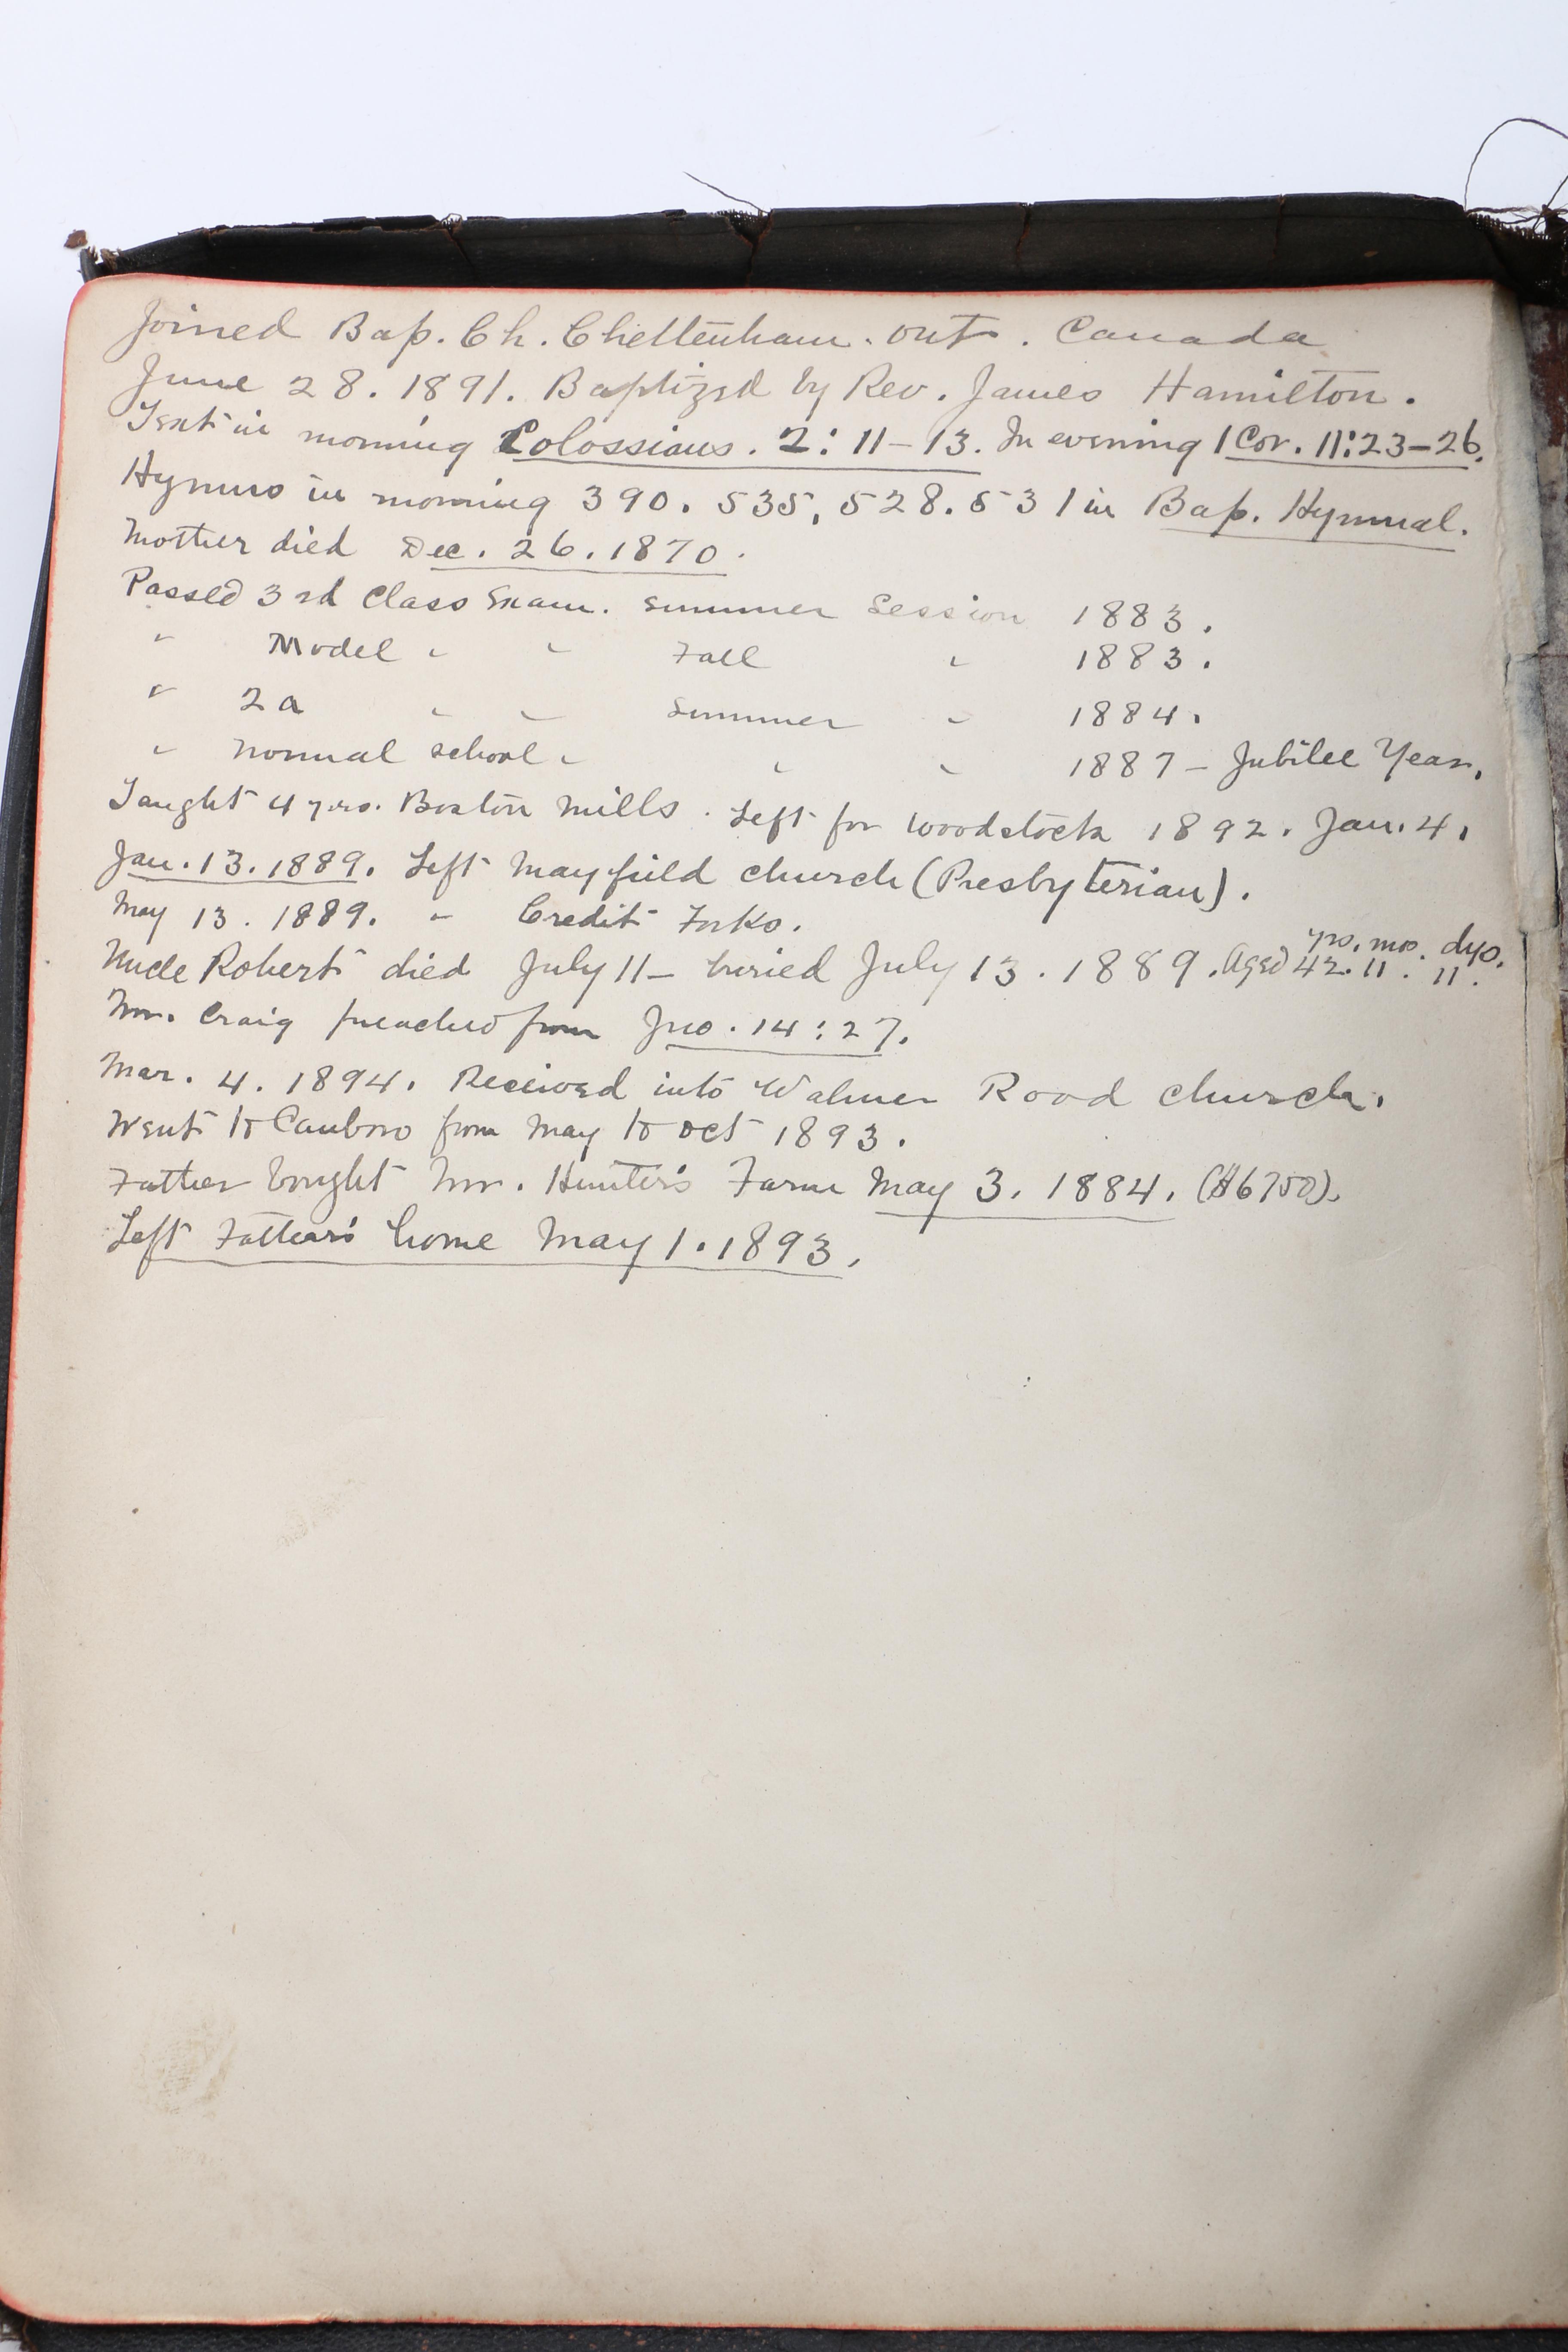 Joined Bap. Ch. Cheltenham. Ont. Canada
June 28. 1891. Baptized by Rev. James Hamilton.
Text in morning Colossians. 2: 11-13. In evening 1 Cor. 11:23-26.
Hymns in morning 390. 535, 528. 531 in Bap. Hymnal.
Mother died Dec. 26. 1870.
Passed 3rd Class Exam. Summer Session 1883.
" Model " " Fall " 1883.
" 2a " " Summer " 1884.
" Normal School " " " 1887 - Jubilee Year.
Taught 4 yrs. Boston Mills. Left for Woodstock 1892. Jan. 4.
Jan. 13. 1889. Left Mayfield church (Presbyterian).
May 13. 1889. " Credit Forks.
Uncle Robert died July 11 - buried July 13. 1889. Aged 42 yrs. 11 mos. 11 dys.
Mr. Craig preached from Jno. 14:27.
Mar. 4. 1894. Received into Walmer Road church.
Went to Canboro from May to Oct 1893.
Father bought Mr. Hunter's Farm May 3. 1884. ($6750).
Left Father's home May 1. 1893.